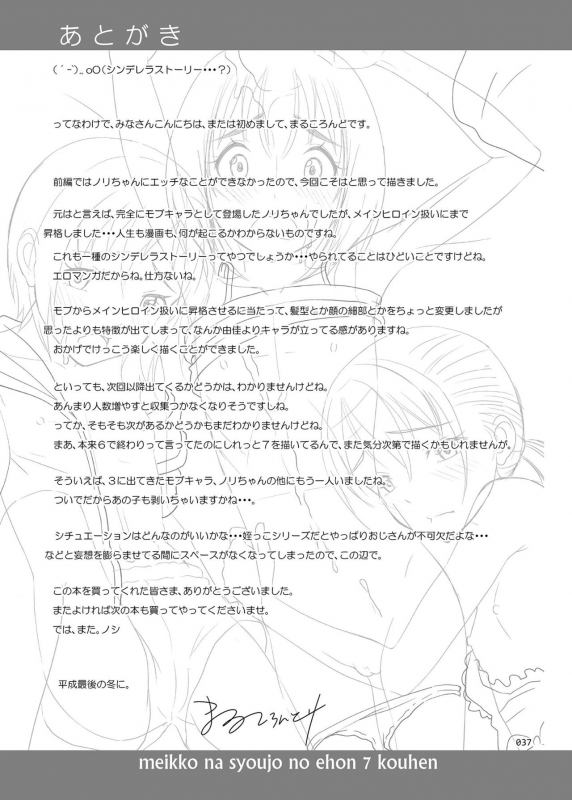 あとがき
(´-`).｡oO(シンデレラストーリー・・・?)
ってなわけで、みなさんこんにちは、または初めまして、まるころんどです。
前編ではノリちゃんにエッチなことができなかったので、今回こそはと思って描きました。
元はと言えば、完全にモブキャラとして登場したノリちゃんでしたが、メインヒロイン扱いにまで
昇格しました・・・人生も漫画も、何が起こるかわからないものですね。
これも一種のシンデレラストーリーってやつでしょうか・・・やられてることはひどいことですけどね。
エロマンガだからね。仕方ないね。
モブからメインヒロイン扱いに昇格させるに当たって、髪型とか顔の細部とかをちょっと変更しましたが
思ったよりも特徴が出てしまって、なんか由佳よりキャラが立ってる感がありますね。
おかげでけっこう楽しく描くことができました。
といっても、次回以降出てくるかどうかは、わかりませんけどね。
あんまり人数増やすと収集つかなくなりそうですしね。
ってか、そもそも次があるかどうかもまだわかりませんけどね。
まあ、本来６で終わりって言ってたのにしれっと７を描いてるんで、また気分次第で描くかもしれませんが。
そういえば、３に出てきたモブキャラ、ノリちゃんの他にもう一人いましたね。
ついでだからあの子も剥いちゃいますかね・・・。
シチュエーションはどんなのがいいかな・・・姪っこシリーズだとやっぱりおじさんが不可欠だよな・・・
などと妄想を膨らませてる間にスペースがなくなってしまったので、この辺で。
この本を買ってくれた皆さま、ありがとうございました。
またよければ次の本も買ってやってくださいませ。
では、また。ノシ
平成最後の冬に。
まるころんど
037
meikko na syoujo no ehon 7 kouhen